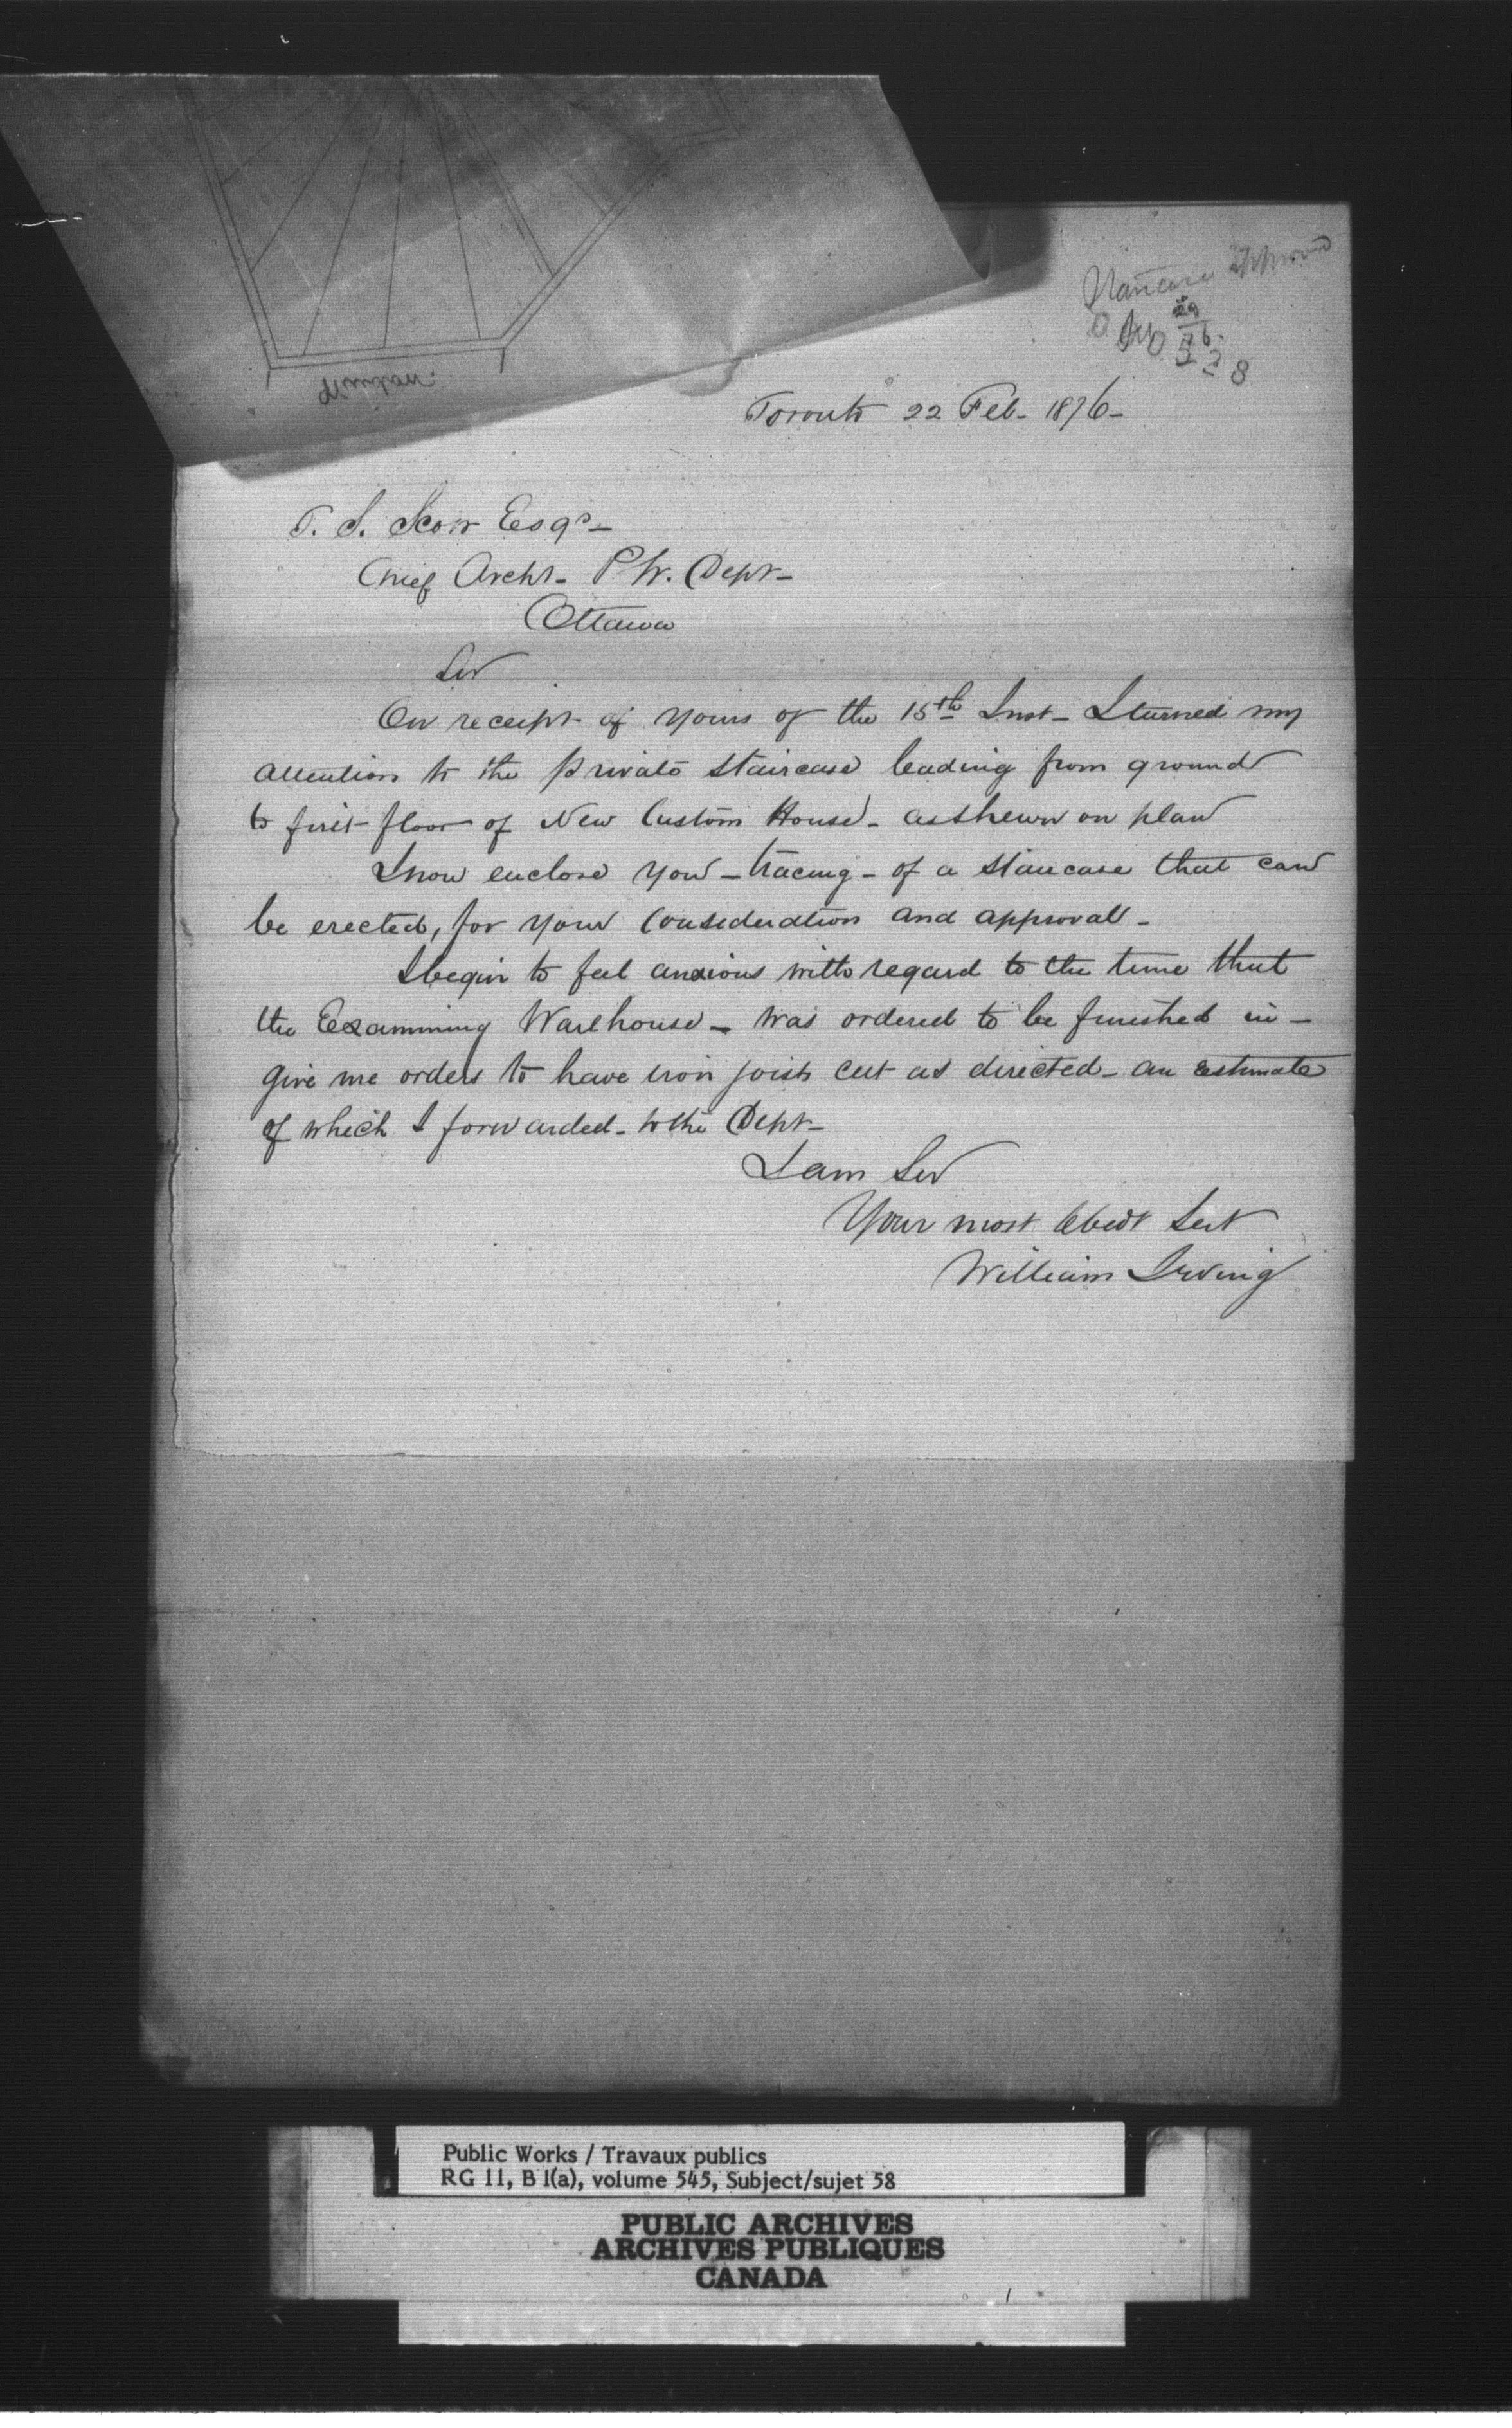 Window.
Staircase approved
29
76
Toronto 22 Feb- 1876-
T. S. Scott Esqr-
Chief Archt- P W. Dept-
Ottawa
Sir
On receipt of yours of the 15th Inst- I turned my
attention to the private staircase leading from ground
to first floor of New Custom House- as shewn on plan
I now enclose you - tracing - of a staircase that can
be erected, for your consideration and approval-
I begin to feel anxious with regard to the time that
the Examining Warehouse - was ordered to be finished in -
give me orders to have iron joists cut as directed - an estimate
of which I forwarded - to the Dept-
I am Sir
Your most Obedt Sert
William Irving
Public Works / Travaux publics
RG 11, B 1(a), volume 545, Subject/sujet 58
PUBLIC ARCHIVES
ARCHIVES PUBLIQUES
CANADA